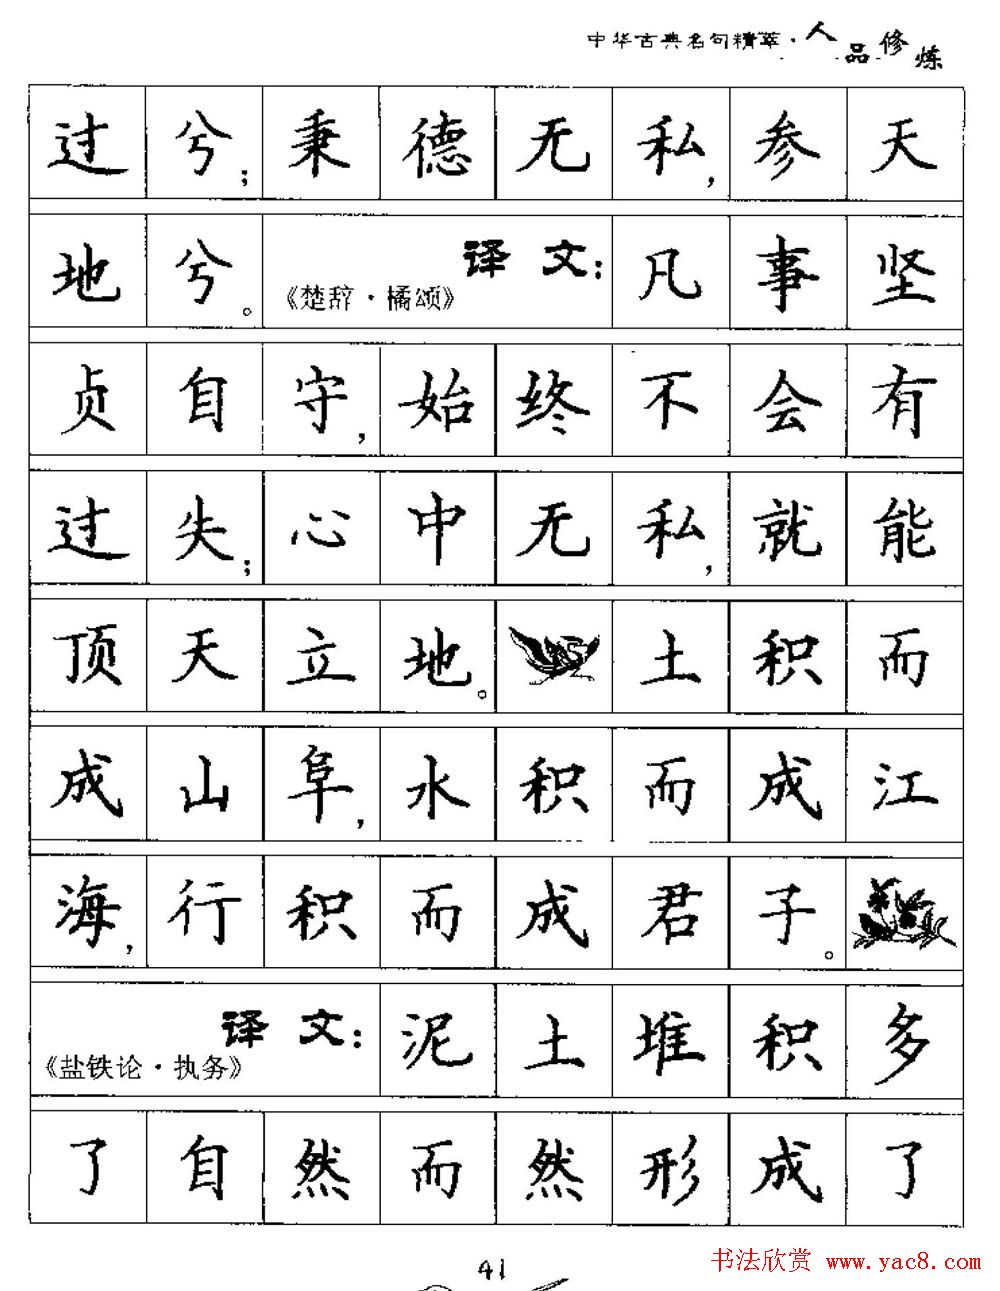 中华古典名句精萃·人品修炼
过兮；秉德无私，参天
地兮。《楚辞·橘颂》译文：凡事坚
贞自守，始终不会有
过失；心中无私，就能
顶天立地。土积而
成山阜，水积而成江
海，行积而成君子。
《盐铁论·执务》译文：泥土堆积多
了自然而然形成了
41
书法欣赏 www.yac8.com